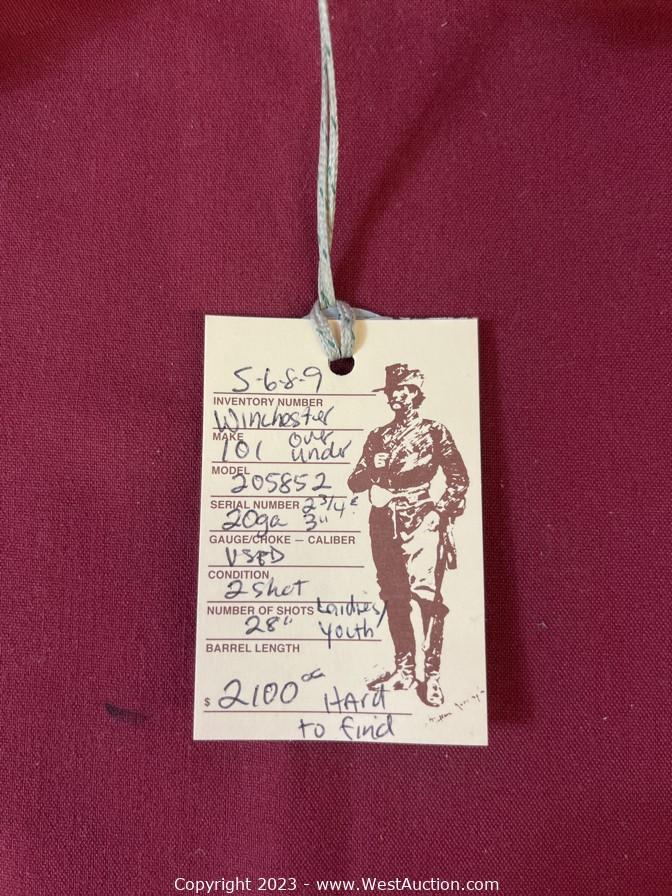 5-6-8-9
INVENTORY NUMBER
Winchester
MAKE
101 over under
MODEL
205852
SERIAL NUMBER 2 3/4 &
20ga 3"
GAUGE/CHOKE — CALIBER
USED
CONDITION
2 shot
NUMBER OF SHOTS Laidies/
28" Youth
BARREL LENGTH
$ 2100 00 HArd
to find
Copyright 2023 - www.WestAuction.com